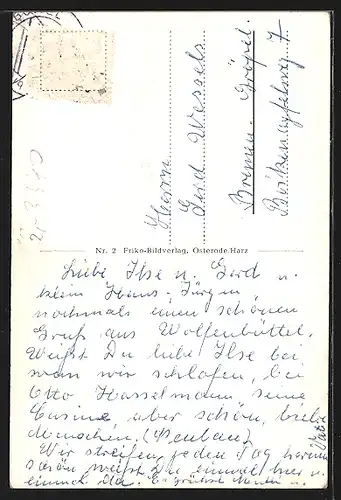 Herrn
Gerd Wessels
Bremen-Gröpel.
7
Nr. 2 Friko-Bildverlag, Osterode/Harz
Liebe Ilse u. Gerd u.
klein Hans-Jürgen
nochmals einen schönen
Gruß aus Wolfenbüttel.
Weißt Du liebe Ilse bei
wem wir schlafen, bei
Otto Hasselmann seine
Cusine, aber schön,
(Neubau)
Wir streifen jeden Tag herum
schön, weißt Du einmal hier u.
einmal da.